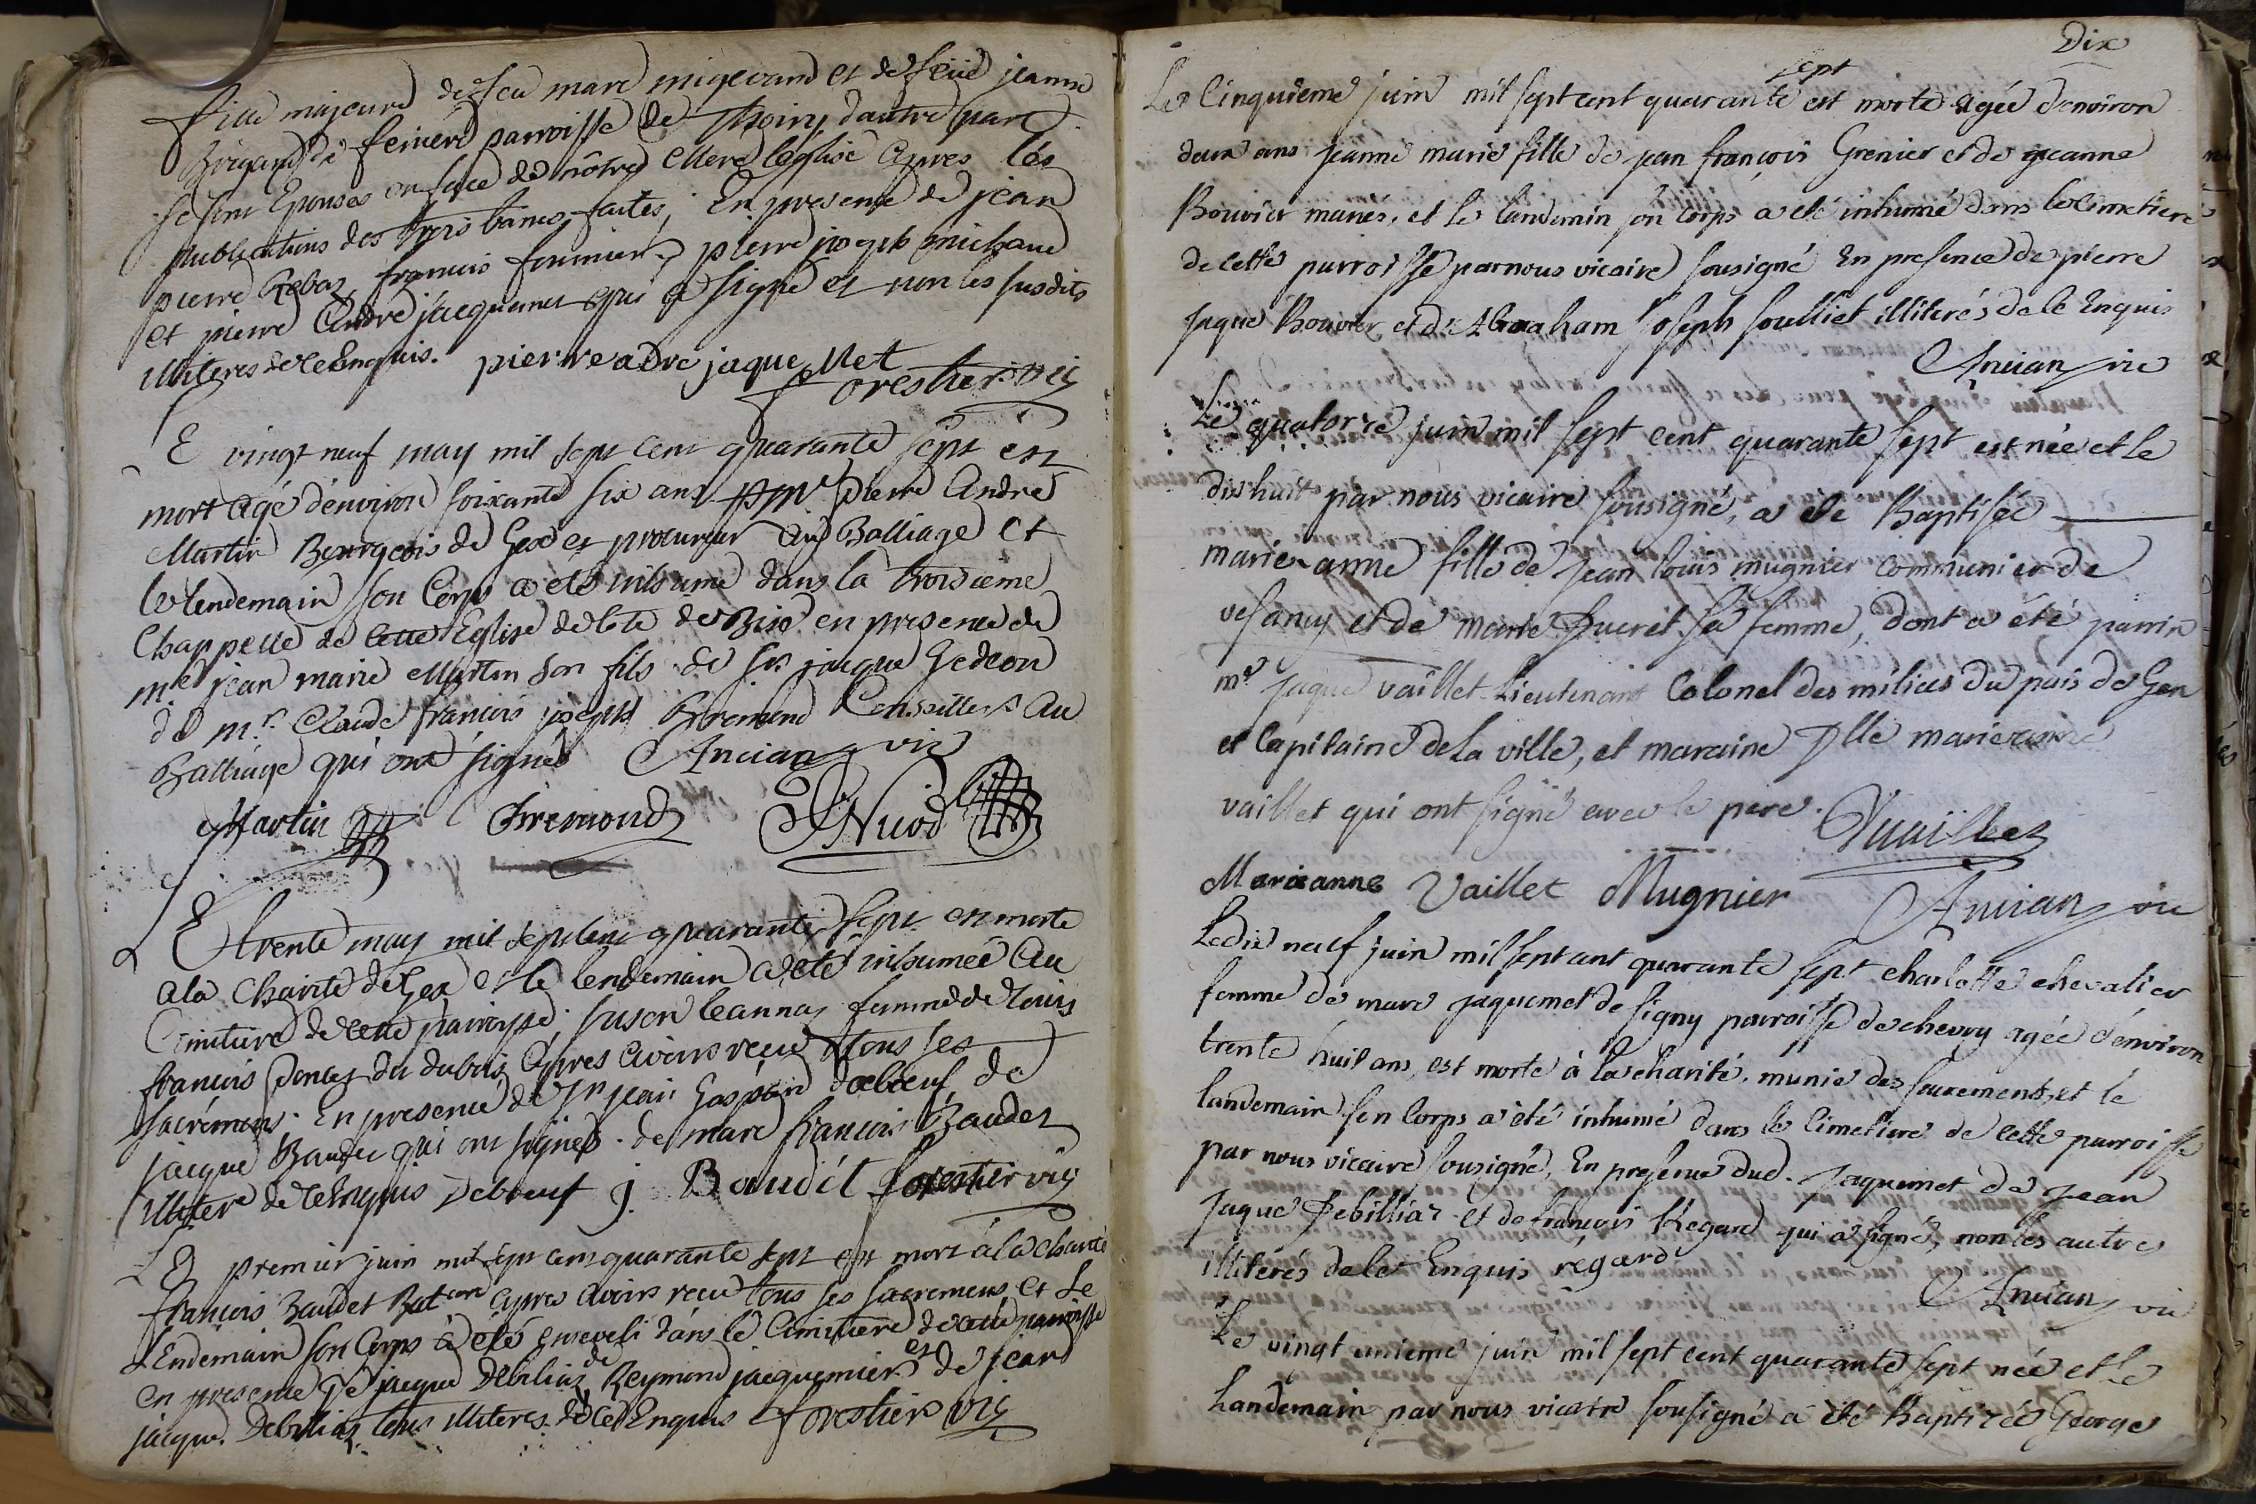 fille majeure de feu marc migerand et de feüe jeanne
Brigand de feniere parroisse de Thoiry dautre part
se sont Epousés en face de nôtre Mere leglise apres les
publications des trois bancs faites, En presence de jean
pierre Rebaz, francois fournier, pierre joseph michaud
et pierre André jacquemet qui a signé et non les susdits
illiteres de ce Enquis. pierre adre jaquemet
forestier vic
Le vingt neuf may mil sept cent quarante sept est
mort agé d'environ soixante six ans Mr pierre André
Martin Bourgeois de Gex et procureur au Balliage et
le lendemain son Corps a été inhumé dans la troisieme
Chappelle de cette Eglise de cote de Bise en presence de
Me jean marie Martin son fils de sr jacque Gedeon
de Mr Claude françois joseph fremond Conseillers Au
Balliage qui ont signés Ancian vic
Martin fremond Nicod
Le trente may mil sept cent quarante sept est morte
a la charité de Gex et le lendemain a été inhumée Au
Cimitiere de cette parroisse, Suson leannaz femme de louis
francois poncet du dubois Apres avoirs reçu tous ses
sacremens. En presence de Sr jean Gaspard deboeuf de
jacque Baudet qui ont signés. de marc francois Baudet
illitere de ce Enquis Deboeuf j. Baudet forestier vic
Le premier juin mil sept cent quarante sept est mort a la charité
francois Baudet apres avoirs recu tous ses sacremens et Le
Lendemain son Corps a été enseveli dans le Cimitiere de cette parroisse
en presence de jacque Debiliaz de Reymond jacquemier et de jean
jacque Debiliaz tous illiteres de ce Enquis forestier vic
Dix
sept
Le Cinquième juin mil sept cent quarante est morte agée denviron
deux ans jeanne marie fille de jean françois Grenier et de jeanne
Bouvier mariés, et le landemin son corps a eté inhumé dans le cimetiere
de cette parroisse par nous vicaire sousigné En presence de pierre
jaque Bouvier et d'Abraham Joseph soulliet illiterés de le Enquis
Ancian vic
Le quatorze juin mil sept cent quarante sept est née et le
dixhuit par nous vicaire sousigné, a été Baptisée
marie anne fille de jean loüis mugnier communier de
vesancy et de marie Ducret sa femme, dont a été parrin
mr jaque vaillet Lieutenant Colonel des milices du païs de Gex
et Capitaine de la ville, et maraine Dlle marieanne
vaillet qui ont signé avec le pere. Vaillet
Marieanne Vaillet Mugnier Ancian vic
Le dix neuf juin mil sept cent quarante sept charlotte chevalier
femme de marc jaquemet de signy parroisse de chevry agée d'environ
trente huit ans, est morte à la charité. munie des sacrements, et le
landemain son Corps a été inhumé dans le Cimetiere de cette parroisse
par nous vicaire sousigné, En presence dud. jaquemet de jean
jaque Debilliaz et de françois Regard qui a signé, non les autres
illiterés de le Enquis régard
Ancian vic
Le vingt unieme juin mil sept cent quarante sept née et le
landemain par nous vicaire sousigné a été Baptizée George